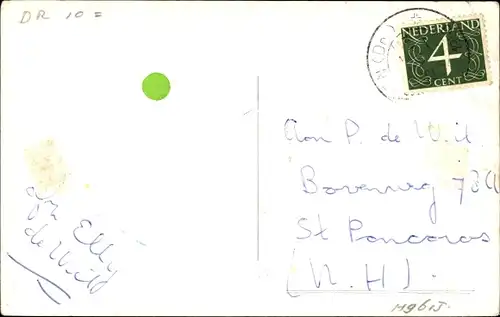 DR 10 =
NEDERLAND
4
CENT
Aan P. de Wit.
St Pancras
(N.H).
Elly
de Wit